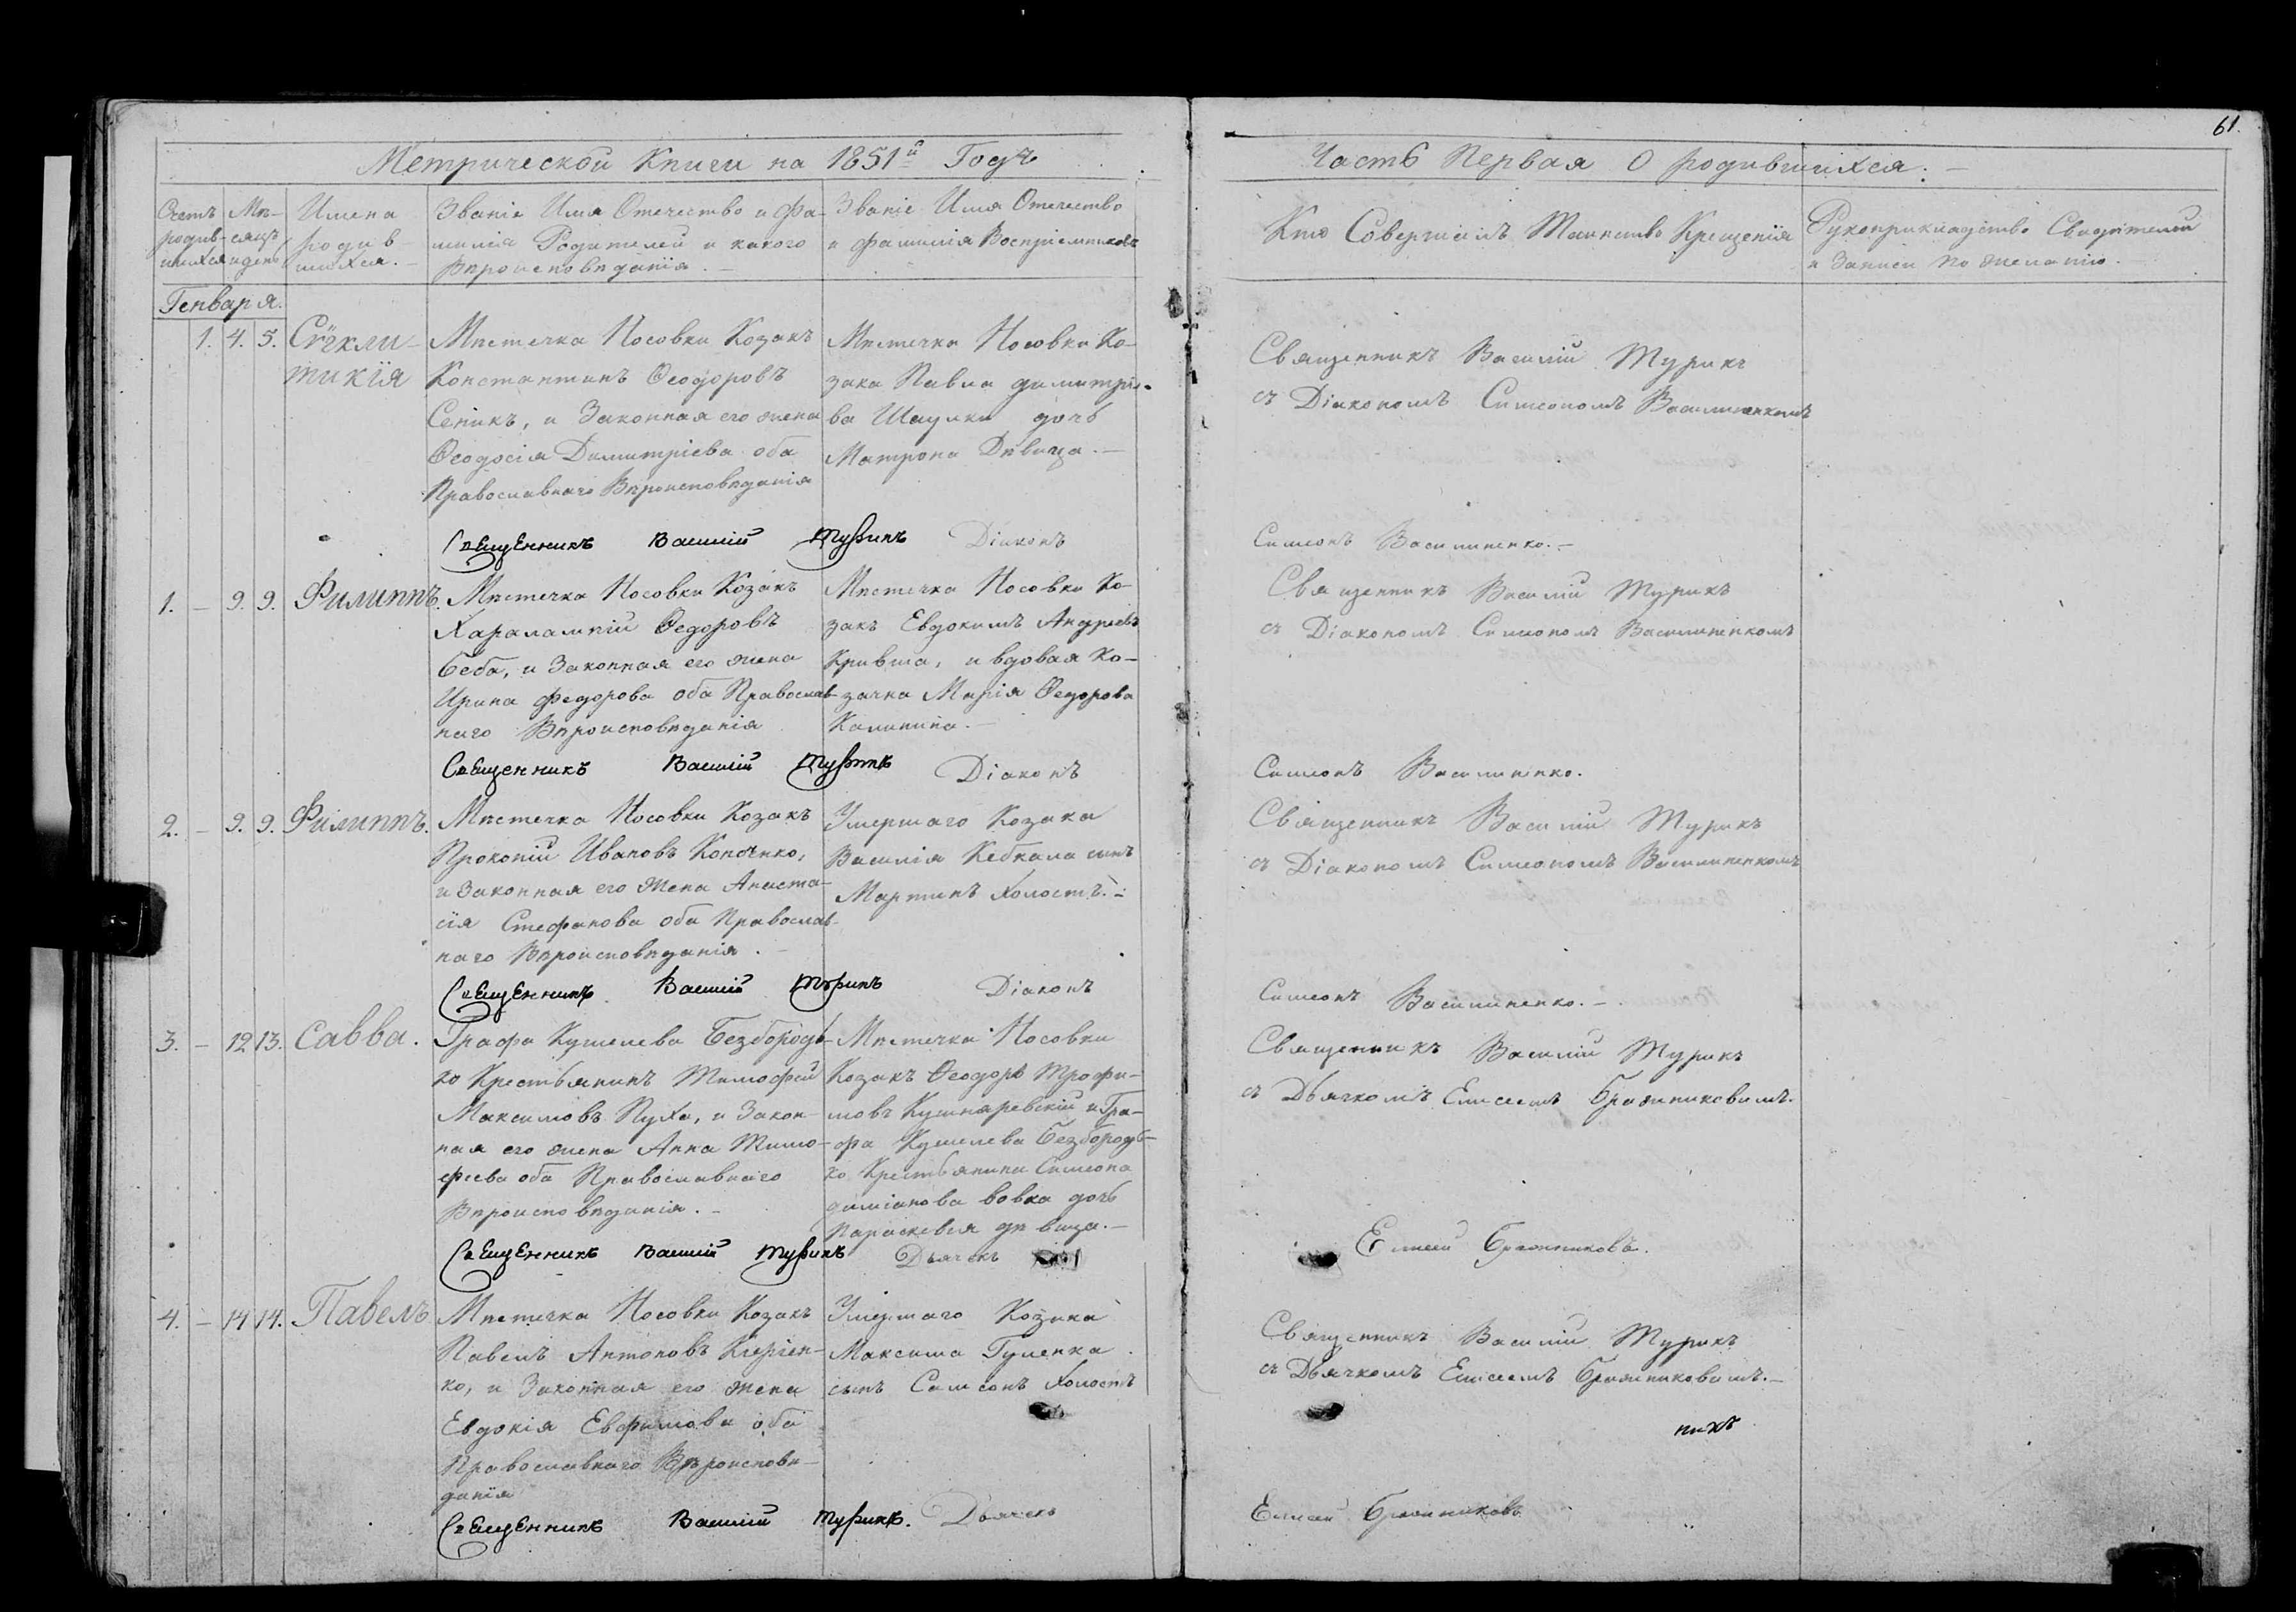 61.
Метрической Книги на 1851й Годъ
Часть Первая О родившихся.
Счетъ родив-шихся
Мѣ-сяцъ и день
Имена родив-шихся.
Званіе Имя Отечество и Фа-
милія Родителей и какого
Вѣроисповѣданія.
Званіе Имя Отечество
и фамилія Воспріемниковъ
Кто Совершалъ Таинство Крещенія
Рукоприкладство Свидѣтелей
и Записи по желанію.
Генваря.
1. 4. 5.
Сѵгкли-
тикія
Мѣстечка Носовки Козакъ
Константинъ Ѳеодоровъ
Сепикъ, и Законная его жена
Ѳеодосія Димитріева оба
Православнаго Вѣроисповѣданія
Мѣстечка Носовки Ко-
зака Павла димитріе-
ва Шаулки дочь
Матрона Дѣвица.
Священникъ Василій Турикъ
съ Діакономъ Симеономъ Василиненкомъ
Священникъ Василій Турикъ Діаконъ
Симеонъ Василиненко.
1. 9. 9.
Филиппъ.
Мѣстечка Носовки Козакъ
Харалампій Ѳедоровъ
Беба, и Законная его жена
Ирина федорова оба Православ-
наго Вѣроисповѣданія
Мѣстечка Носовки Ко-
закъ Евдокимъ Андреевъ
Кривша, и вдовая Ко-
зачка Марія Ѳедорова
Калинина.
Священникъ Василій Турикъ
съ Діакономъ Симеономъ Василиненкомъ
Священникъ Василій Турикъ Діаконъ
Симеонъ Василиненко.
2. 9. 9.
Филиппъ.
Мѣстечка Носовки Козакъ
Прокопій Ивановъ Коноченко,
и Законная его жена Анаста-
сія Стефанова оба Православ-
наго Вѣроисповѣданія.
Умершаго Козака
Василія Кебкала сынъ
Мартинъ Холостъ.
Священникъ Василій Турикъ
съ Діакономъ Симеономъ Василиненкомъ
Священникъ Василій Турикъ Діаконъ
Симеонъ Василиненко.
3. 12 13.
Савва.
Графа Кушелева Безбородь-
ко Крестьянинъ Тимофей
Максимовъ Пуха, и Закон-
ная его жена Анна Тимо-
феева оба Православнаго
Вѣроисповѣданія.
Мѣстечка Носовки
Козакъ Ѳеодоръ Трофи-
мовъ Кушнаревскій и Гра-
фа Кушелева Безбородь-
ко Крестьянина Симеона
даміанова вовка дочь
Параскевія дѣвица.
Священникъ Василій Турикъ
съ Дьячкомъ Елисеемъ Бражниковымъ.
Священникъ Василій Турикъ Дьячекъ
Елисей Бражниковъ.
4. 14 14.
Павелъ
Мѣстечка Носовки Козакъ
Павелъ Антоновъ
ко, и Законная его жена
Евдокія Евфимова оба
Православнаго Вѣроисповѣ-
данія
Умершаго Козака
Максима Гуленка
сынъ Самсонъ Холостъ
Священникъ Василій Турикъ
съ Дьячкомъ Елисеемъ Бражниковымъ.
никъ
Священникъ Василій Турикъ. Дьячекъ
Елисей Бражниковъ